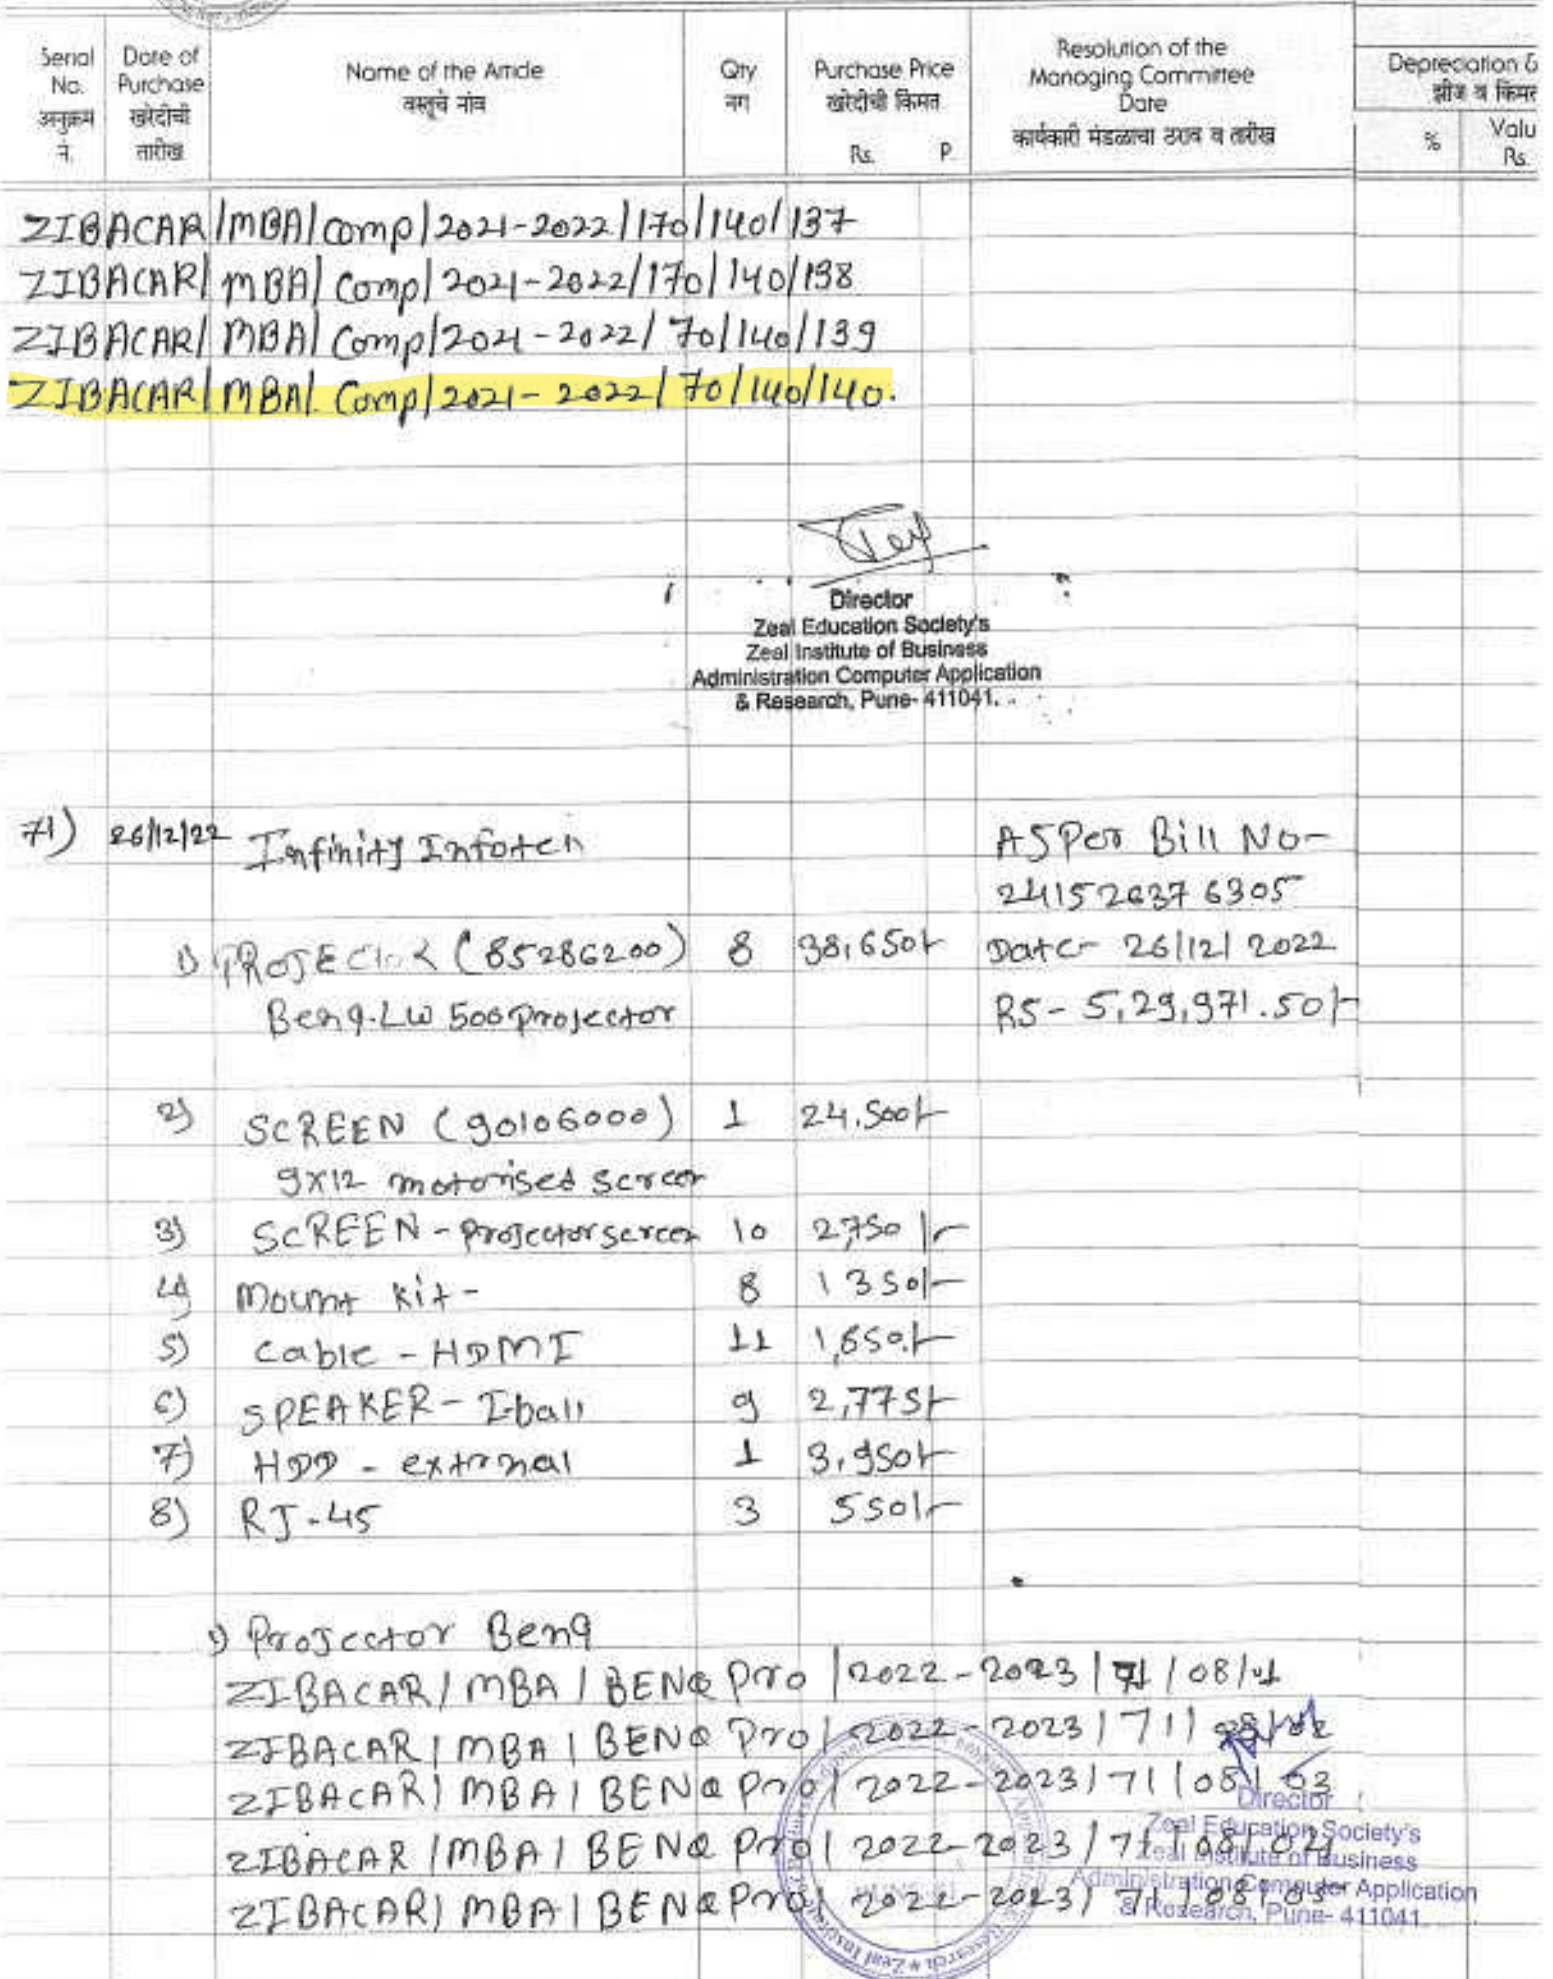 Serial No. अनुक्रम नं.
Date of Purchase खरेदीची तारीख
Name of the Article वस्तूचे नांव
Qty नग
Purchase Price खरेदीची किंमत Rs. P.
Resolution of the Managing Committee Date कार्यकारी मंडळाचा ठराव व तारीख
Depreciation & झीज व किंमत
% Valu Rs.
ZIBACAR/MBA/Comp/2021-2022/170/140/137
ZIBACAR/MBA/Comp/2021-2022/170/140/138
ZIBACAR/MBA/Comp/2021-2022/70/140/139
ZIBACAR/MBA/Comp/2021-2022/70/140/140.
Director
Zeal Education Society's
Zeal Institute of Business
Administration Computer Application
& Research, Pune- 411041.
71) 26/12/22 Infinity Infotech ASPer Bill No-
24152637 6305
1) PROJECTOR (85286200) 8 38,650/- Date- 26/12/2022
Benq.LW 500 Projector RS- 5,29,971.50/-
2) SCREEN (90106000) 1 24,500/-
9X12 motorised screen
3) SCREEN - Projector screen 10 2,750/-
4) Mount Kit - 8 1350/-
5) Cable - HDMI 11 1,650/-
6) SPEAKER - I-ball 9 2,775/-
7) HDD - external 1 3,950/-
8) RJ-45 3 550/-
1) Projector Benq
ZIBACAR/MBA/BENQ Pro/2022-2023/71/08/01
ZIBACAR/MBA/BENQ Pro/2022-2023/71/08/02
ZIBACAR/MBA/BENQ Pro/2022-2023/71/08/03
ZIBACAR/MBA/BENQ Pro/2022-2023/71/08/04
ZIBACAR/MBA/BENQ Pro/2022-2023/71/08/05
Director
Zeal Education Society's
Zeal Institute of Business
Administration Computer Application
& Research, Pune- 411041